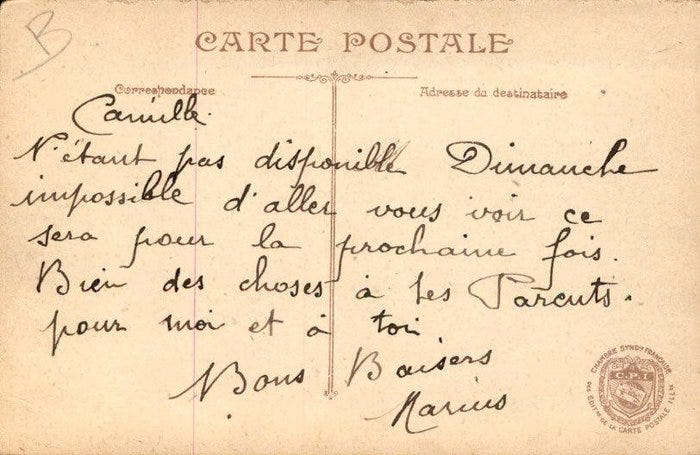 B
CARTE POSTALE
Correspondance
Adresse du destinataire
Camille.
N'étant pas disponible Dimanche
impossible d'aller vous voir ce
sera pour la prochaine fois.
Bien des choses à tes Parents.
pour moi et à toi
Bons Baisers
Marius
CHAMBRE SYNDle FRANÇAISE
C.P.I
DES ÉDITrs DE LA CARTE POSTALE ILLée